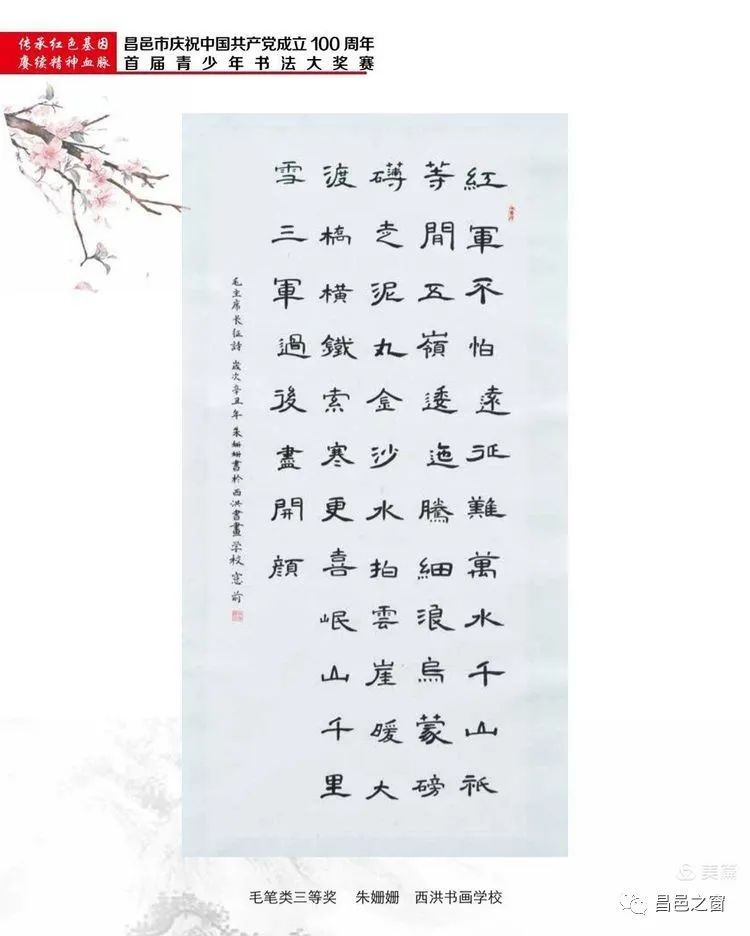 传承红色基因
赓续精神血脉
昌邑市庆祝中国共产党成立100周年
首届青少年书法大奖赛
紅軍不怕遠征難萬水千山祇
等閒五嶺逶迤騰細浪烏蒙磅
礴走泥丸金沙水拍雲崖暖大
渡橋橫鐵索寒更喜岷山千里
雪三軍過後盡開顔
毛主席长征詩 歲次辛丑年 朱姗姗書於西洪書畫学校窓前
毛笔类三等奖 朱姗姗 西洪书画学校
美篇
昌邑之窗